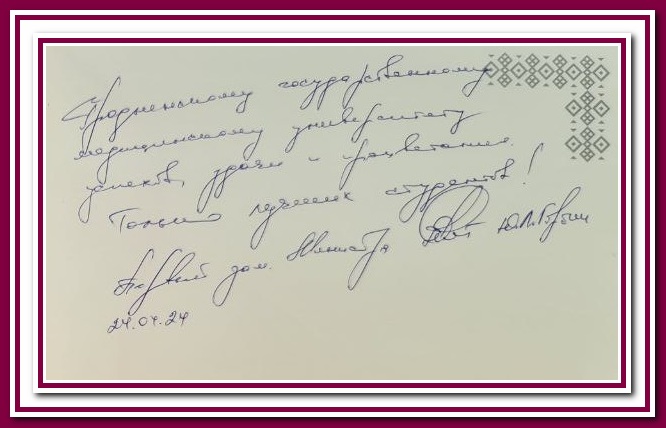 Гродненскому государственному
медицинскому университету
успехов, удачи и процветания.
Только лучших студентов!
Первый зам. Министра Ю.Л. Горбич
24.04.24